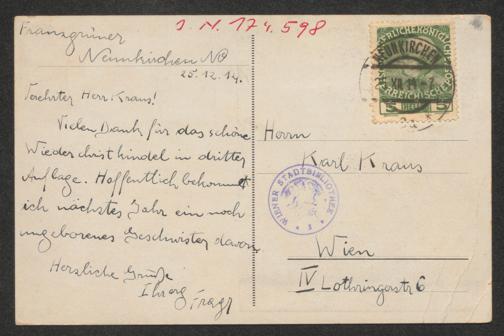 I.N. 174.598
Franzgrüner
Neunkirchen NÖ
25.12.14.
Verehrter Herr Kraus!
Vielen Dank für das schöne
Wiederchristkindel in dritter
Auflage. Hoffentlich bekommt
ich nächstes Jahr ein noch
ungeborenes Geschwister davon
Herzliche Grüße
Ihr
Herrn
Karl Kraus
Wien
IV Lothringerstr 6
WIENER STADTBIBLIOTHEK
NEUNKIRCHEN
5 5